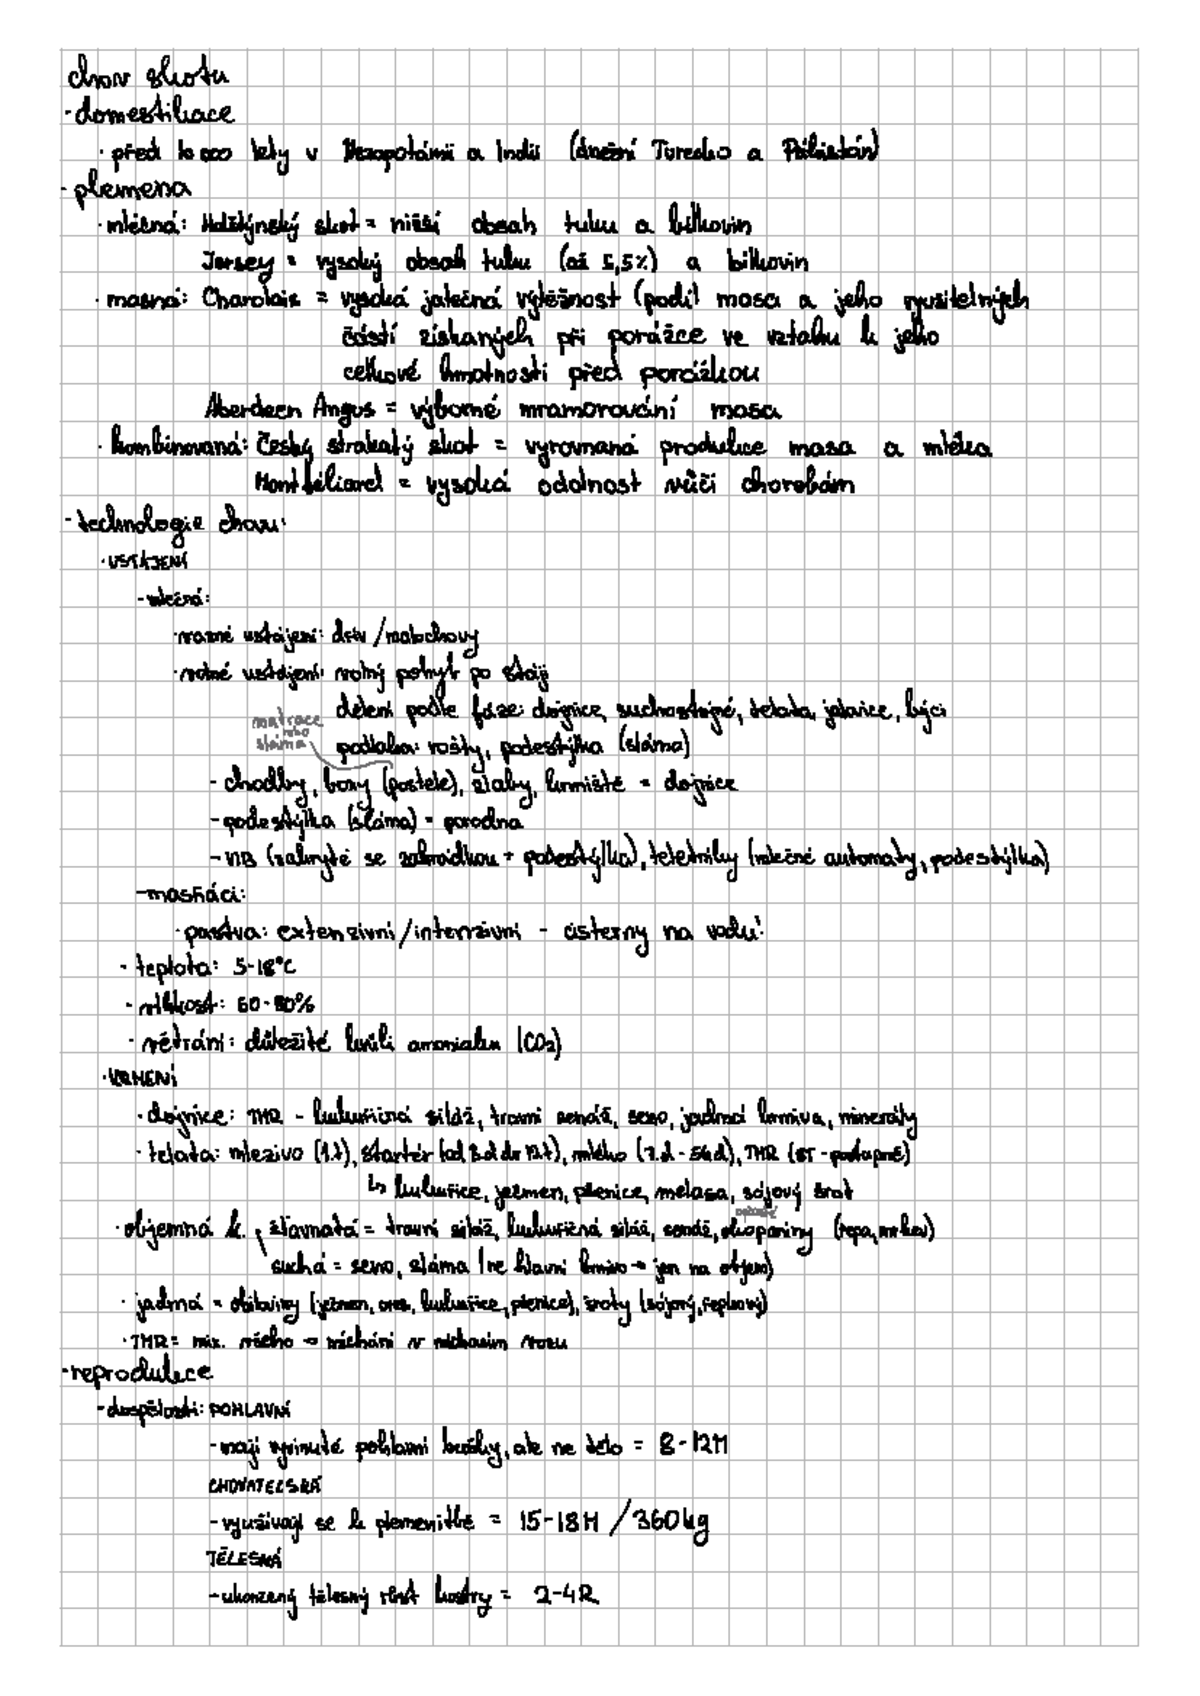 chov skotu
· domestikace
· před 10 000 lety v Mezopotámii a Indii (dnešní Turecko a Pákistán)
· plemena
· mléčná: Holštýnský skot = nižší obsah tuku a bílkovin
Jersey = vysoký obsah tuku (až 5,5%) a bílkovin
· masná: Charolais = vysoká jatečná výtěžnost (podíl masa a jeho využitelných
částí získaných při porážce ve vztahu k jeho
celkové hmotnosti před porážkou
Aberdeen Angus = výborné mramorování masa
· kombinovaná: Český strakatý skot = vyrovnaná produkce masa a mléka
Montbéliard = vysoká odolnost vůči chorobám
- technologie chovu:
· USTÁJENÍ
- mléčná:
· vazné ustájení: dřív / malochovy
· volné ustájení: volný pohyb po stáji
dělení podle fáze: dojnice, suchostojné, telata, jalovice, býci
matrace
nebo
sláma
podlaha: rošty, podestýlka (sláma)
- chodby, boxy (postele), žlaby, krmiště = dojnice
- podestýlka (sláma) = porodna
- VIB (zakryté se zahrádkou + podestýlka), teletníky (mléčné automaty, podestýlka)
- masňáci:
· pastva: extenzivní / intenzivní - cisterny na vodu!
· teplota: 5-18°C
· vlhkost: 60-80%
· větrání: důležité kvůli amoniaku (CO2)
· KRMENÍ
· dojnice: TMR - kukuřičná siláž, travní senáž, seno, jadrná krmiva, minerály
· telata: mlezivo (1.t), startér (od 3.d do 12.t), mléko (7.d - 56.d), TMR (8T - postupně)
↳ kukuřice, ječmen, pšenice, melasa, sójový šrot
· objemná k. šťavnatá = travní siláž, kukuřičná siláž, senáž, okopaniny (řepa, mrkev)
suchá = seno, sláma (ne hlavní krmivo → jen na objem)
· jadrná = obiloviny (ječmen, oves, kukuřice, pšenice), šroty (sójový, řepkový)
· TMR = mix. všeho → míchání v míchacím vozu
- reprodukce
- dospělosti: POHLAVNÍ
- mají vyvinuté pohlavní buňky, ale ne tělo = 8-12M
CHOVATELSKÁ
- využívají se k plemenitbě = 15-18M / 360kg
TĚLESNÁ
- ukončený tělesný růst kostry = 2-4R